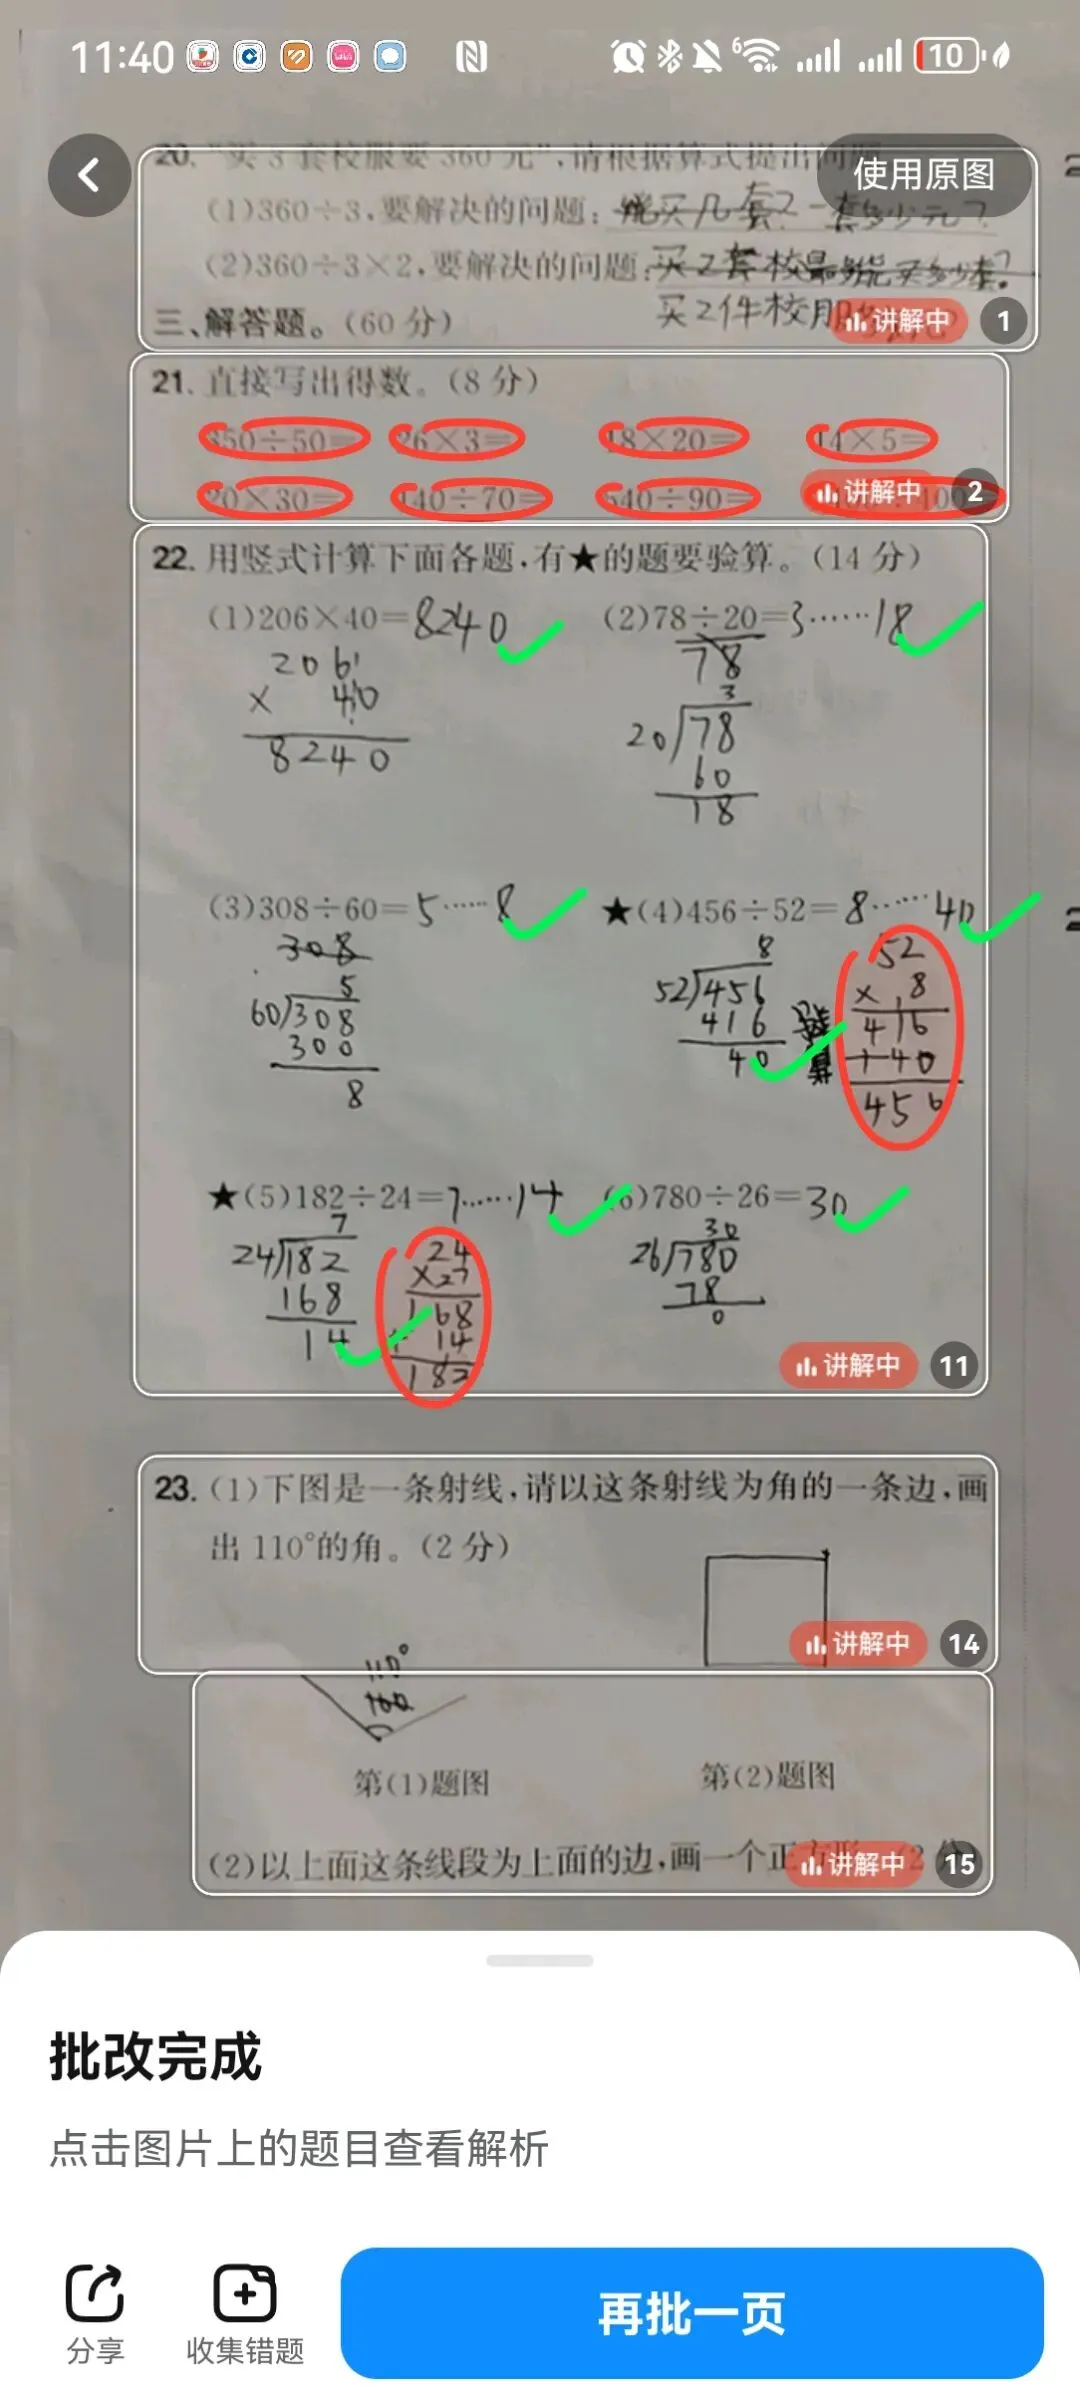 11:40
10
20. "买3套校服要360元",请根据算式提出问
使用原图
(1)360÷3,要解决的问题: 一套多少元?
(2)360÷3×2,要解决的问题:
买2件校服
三、解答题。(60分)
讲解中 1
21. 直接写出得数。(8分)
350÷50= 26×3= 18×20= 14×5=
20×30= 140÷70= 540÷90=
讲解中 2
22. 用竖式计算下面各题,有★的题要验算。(14分)
(1)206×40=8240 (2)78÷20=3……18
206 78
× 40 3
8240 20 78
60
18
(3)308÷60=5……8 ★(4)456÷52=8……40
308 8 52
5 52 456 × 8
60 308 416 验算 416
300 40 +40
8 456
★(5)182÷24=7……14 (6)780÷26=30
7 24 30
24 182 ×27 26 780
168 168 78
14 14 0
182
讲解中 11
23. (1)下图是一条射线,请以这条射线为角的一条边,画
出110°的角。(2分)
讲解中 14
110°
第(1)题图 第(2)题图
(2)以上面这条线段为上面的边,画一个正
讲解中 15
批改完成
点击图片上的题目查看解析
分享
收集错题
再批一页